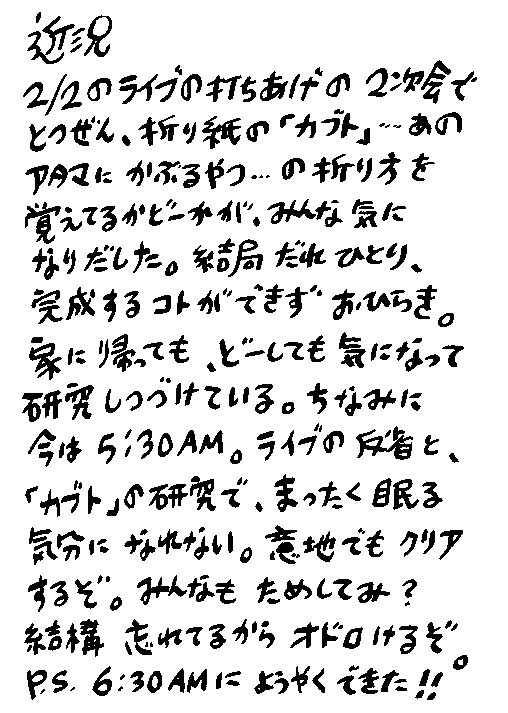 近況
2/2のライブの打ちあげの2次会で
とつぜん、折り紙の「カブト」…あの
アタマにかぶるやつ…の折り方を
覚えてるかどーかが、みんな気に
なりだした。結局だれひとり、
完成するコトができずおひらき。
家に帰っても、どーしても気になって
研究しつづけている。ちなみに
今は5:30AM。ライブの反省と、
「カブト」の研究で、まったく眠る
気分になれない。意地でもクリア
するぞ。みんなもためしてみ?
結構忘れてるからオドロけるぞ。
P.S. 6:30AMにようやくできた!!